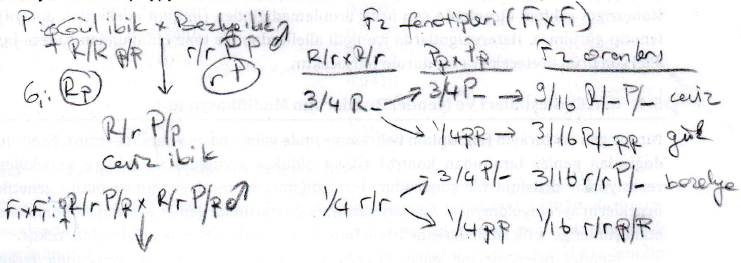 P: gül ibik × bezelye ibik
R/R p/p r/r P/P
G₁: Rp rP
R/r P/p
Ceviz ibik
F₁×F₁: R/r P/p × R/r P/p ♂
F₂ fenotipleri (F₁×F₁)
R/r · R/r P/p × P/p F₂ oranları
3/4 R_ → 3/4 P_ → 9/16 R/_ P/_ ceviz
→ 1/4 pp → 3/16 R/_ pp gül
1/4 r/r → 3/4 P/_ 3/16 r/r P/_ bezelye
→ 1/4 pp 1/16 r/r p/p